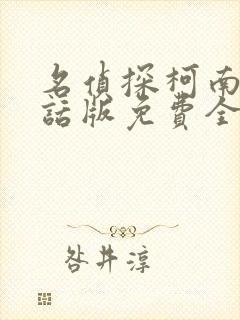 名偵探柯南
話版免費全
咎井淳